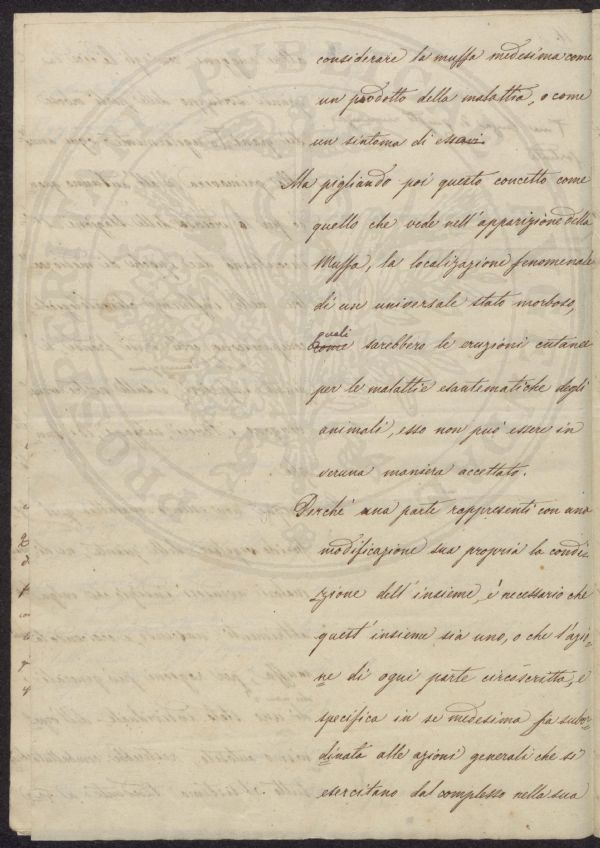 considerare la muffa medesima come
un prodotto della malattia, o come
un sintoma di essa
Ma pigliando poi questo concetto come
quello che vede nell'apparizione della
Muffa, la localizazione fenomenale
di un universale stato morboso,
quali
come sarebbero le eruzioni cutanee
per le malattie esantematiche degli
animali, esso non può essere in
veruna maniera accettato.
Perché una parte rappresenti con una
modificazione sua propria la condi-
zione dell'insieme, è necessario che
quest'insieme sia uno, o che l'azio-
ne di ogni parte circoscritta, e
specifica in se medesima sia subor-
dinata alle azioni generali che si
esercitano dal complesso nella sua